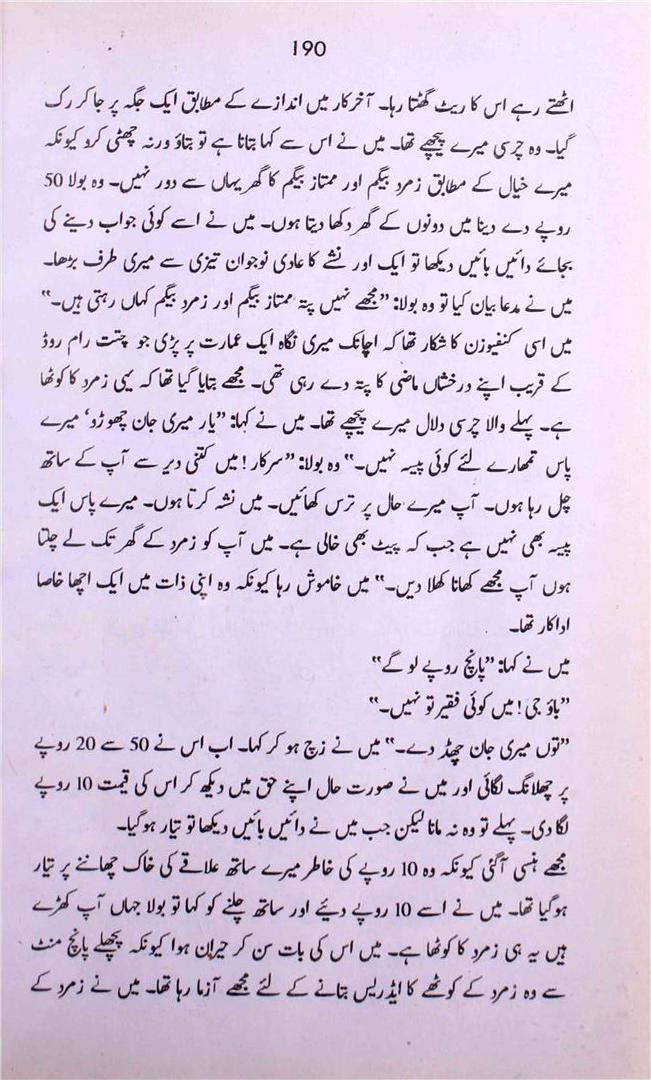 190
اٹھتے رہے اس کا ریٹ گھٹتا رہا۔ آخرکار میں اندازے کے مطابق ایک جگہ پر جا کر رک
گیا۔ وہ چرسی میرے پیچھے تھا۔ میں نے اس سے کہا بتانا ہے تو بتاؤ ورنہ چھٹی کرو کیونکہ
میرے خیال کے مطابق زمرد بیگم اور ممتاز بیگم کا گھر یہاں سے دور نہیں۔ وہ بولا 50
روپے دے دینا میں دونوں کے گھر دکھا دیتا ہوں۔ میں نے اسے کوئی جواب دینے کی
بجائے دائیں بائیں دیکھا تو ایک اور نشے کا عادی نوجوان تیزی سے میری طرف بڑھا۔
میں نے مدعا بیان کیا تو وہ بولا: ”مجھے نہیں پتہ ممتاز بیگم اور زمرد بیگم کہاں رہتی ہیں۔“
میں اسی کنفیوزن کا شکار تھا کہ اچانک میری نگاہ ایک عمارت پر پڑی جو چتت رام روڈ
کے قریب اپنے درخشاں ماضی کا پتہ دے رہی تھی۔ مجھے بتایا گیا تھا کہ یہی زمرد کا کوٹھا
ہے۔ پہلے والا چرسی دلال میرے پیچھے تھا۔ میں نے کہا: ”یار میری جان چھوڑو‘ میرے
پاس تمھارے لئے کوئی پیسہ نہیں۔“ وہ بولا: ”سرکار! میں کتنی دیر سے آپ کے ساتھ
چل رہا ہوں۔ آپ میرے حال پر ترس کھائیں۔ میں نشہ کرتا ہوں۔ میرے پاس ایک
پیسہ بھی نہیں ہے جب کہ پیٹ بھی خالی ہے۔ میں آپ کو زمرد کے گھر تک لے چلتا
ہوں آپ مجھے کھانا کھلا دیں۔“ میں خاموش رہا کیونکہ وہ اپنی ذات میں ایک اچھا خاصا
اداکار تھا۔
میں نے کہا: ”پانچ روپے لو گے“
”باؤ جی! میں کوئی فقیر تو نہیں۔“
”توں میری جان چھڈ دے۔“ میں نے زچ ہو کر کہا۔ اب اس نے 50 سے 20 روپے
پر چھلانگ لگائی اور میں نے صورت حال اپنے حق میں دیکھ کر اس کی قیمت 10 روپے
لگا دی۔ پہلے تو وہ نہ مانا لیکن جب میں نے دائیں بائیں دیکھا تو تیار ہوگیا۔
مجھے ہنسی آگئی کیونکہ وہ 10 روپے کی خاطر میرے ساتھ علاقے کی خاک چھاننے پر تیار
ہوگیا تھا۔ میں نے اسے 10 روپے دیئے اور ساتھ چلنے کو کہا تو بولا جہاں آپ کھڑے
ہیں یہ ہی زمرد کا کوٹھا ہے۔ میں اس کی بات سن کر حیران ہوا کیونکہ پچھلے پانچ منٹ
سے وہ زمرد کے کوٹھے کا ایڈریس بتانے کے لئے مجھے آزما رہا تھا۔ میں نے زمرد کے